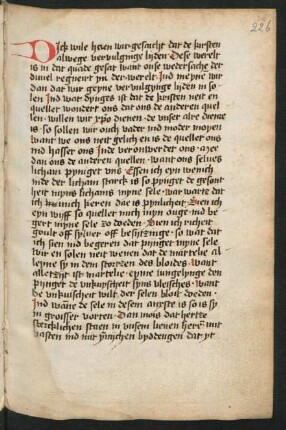 226
wile heuen wir gesacht dat de kirsten
alwege vervulgynge lyden Dese werelt
is in dat quade gesat want onse wedersache der
duuel regneirt yn der werelt Ind meyne wir
dan dat wir geyne vervulgynge lyden in so
len Ind wat dynges is dat de kristen neit en
queller wondert ons dat ons de anderen quel
len willen wir xpo dienen de vnser alre diene
is so sollen wir ouch vader ind moder moyen
want we ons neit gelich en is de queller ons
ind hasser ons Ind verwondert ons
dan ons de anderen quellen want ons selues
licham pyniget vns Essen ich eyn wenich
me der licham starck is so pynget de gesunt
heit myns lichams myne sele war warte dat
ich mynich keren dae is pynlicheit Sien ich
eyn wyff so queller mich myn ouge ind be
gert myne sele zo doeden Sien ich richeit
goult off syluer off besittinge so wat dat
ich sien ind begeren dat pyniget myne sele
wir en solen neit wenen dat de martelie al
leyne sy in den storten des bloides want
alletzyt is martelie eyme iungelynge den
pyniget de vnkuyscheit syns vleisches want
de vnkuischeit wilt der selen bloit doeden
Ind wanne de sele in desem anxste is so is sy
in groisser vorten Dan mois dat hertte
vlien in vnsem lieuen herr mit
vasten ind mit ynnichen byddengen dat yr